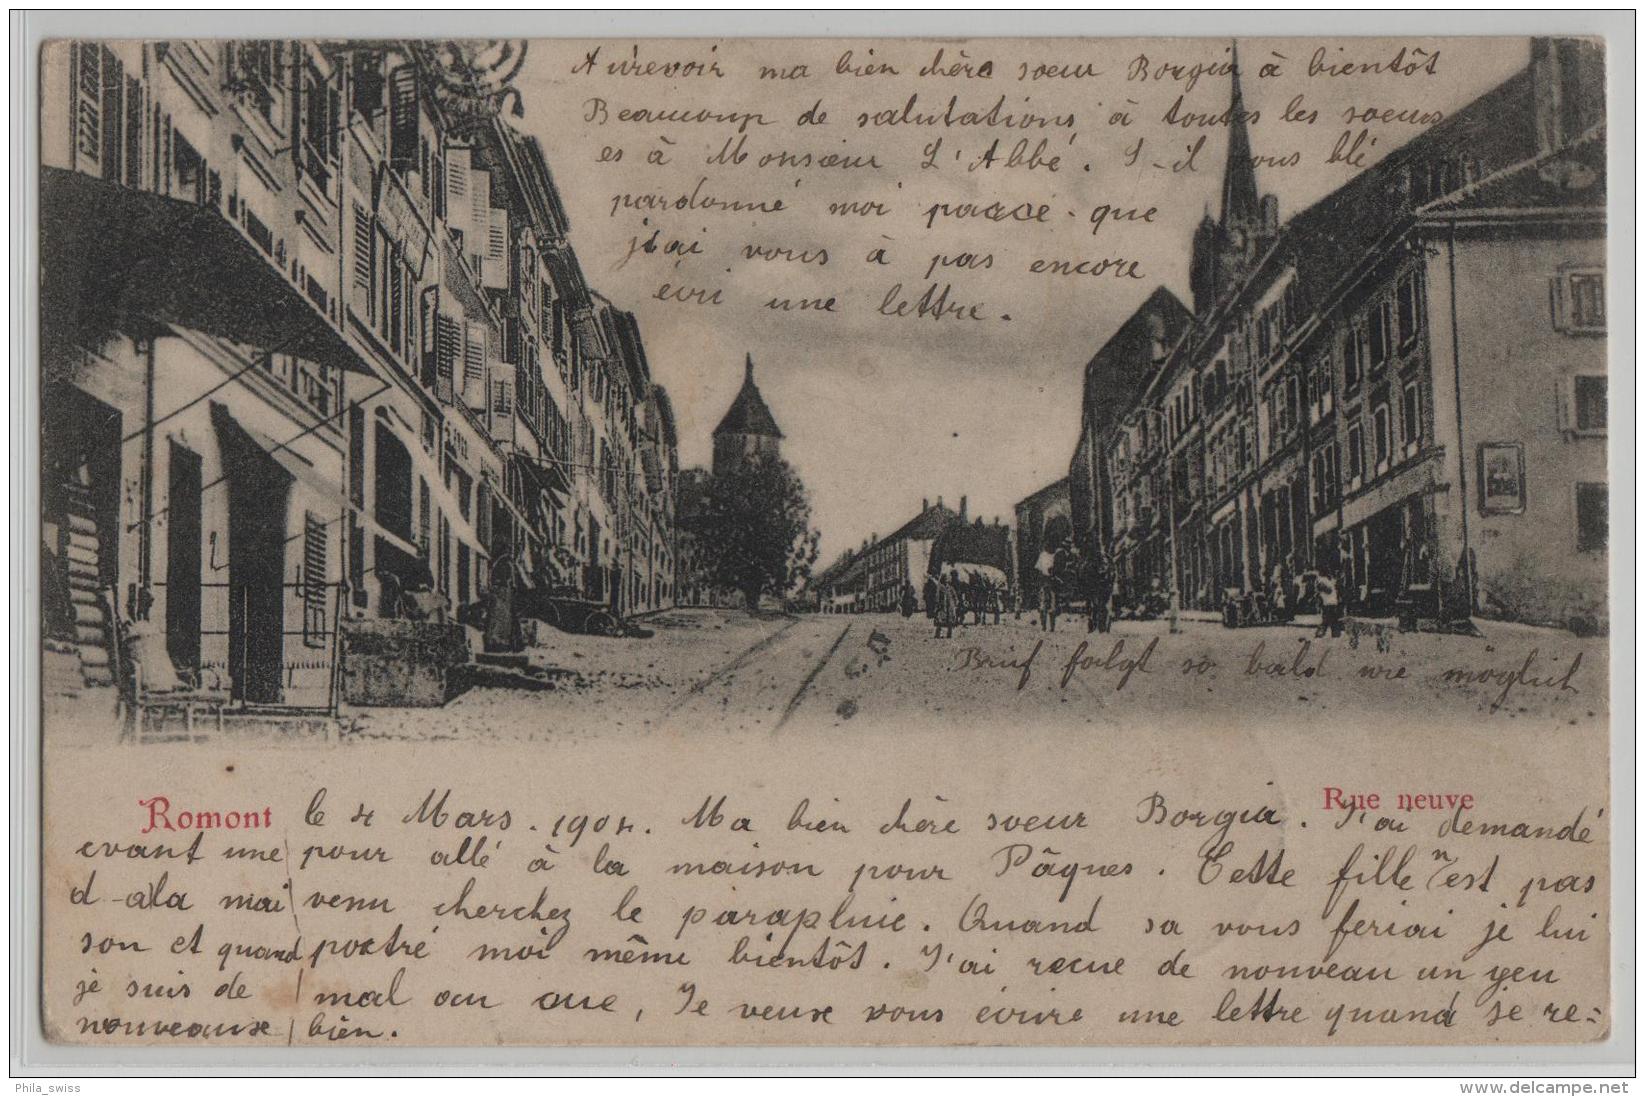 Aurevoir ma bien chère soeur Borgia à bientôt
Beaucoup de salutations à toutes les soeurs
es à Monsœur L'Abbé. S-il vous blé
pardonné moi parce que
j'ai vous à pas encore
écri une lettre.
Brief folgt so bald wie möglich
Romont
Rue neuve
le 4 Mars. 1904. Ma bien chère soeur Borgia. J'ai demandé
pour allé à la maison pour Pâques. Cette fille n'est pas
venu cherchez le parapluie. Quand sa vous feriai je lui
portré moi même bientôt. J'ai recue de nouveau un yeu
mal au que, Je veuse vous écrire une lettre quand je re=
bien.
evant une
d-ala mai
son et quand
je suis de
nouveause
Phila_swiss
www.delcampe.net